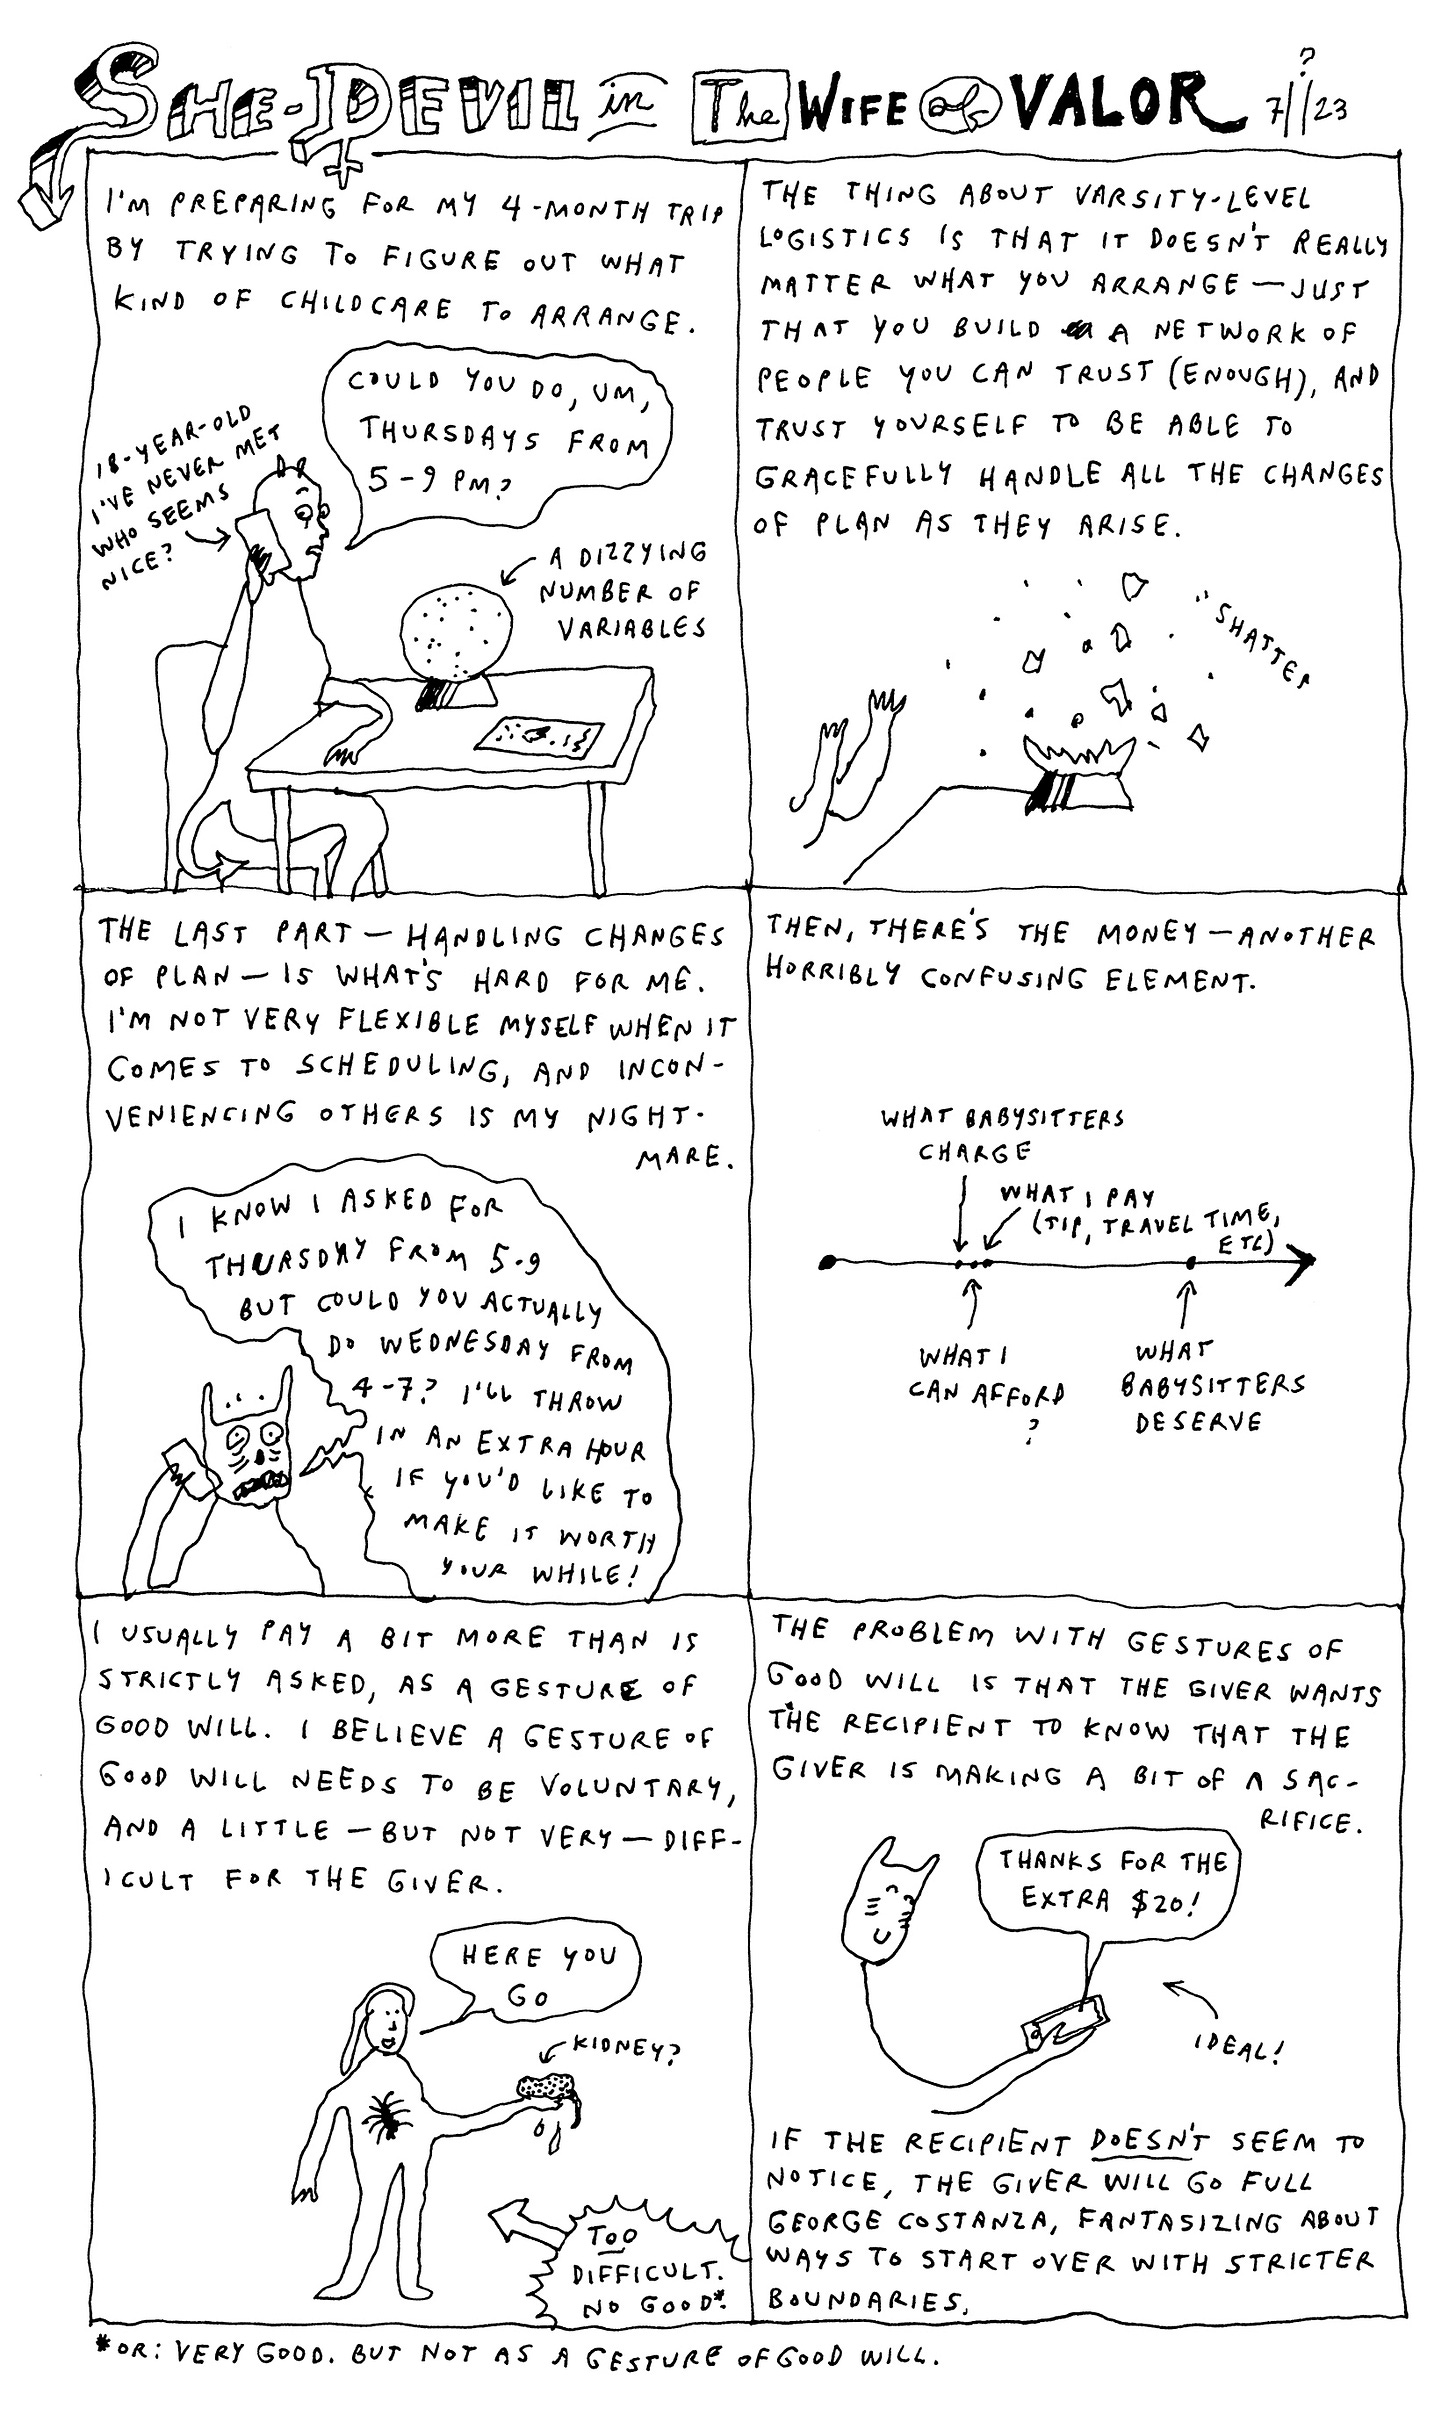 SHE-DEVIL in The WIFE of VALOR 7/?/23
I'M PREPARING FOR MY 4-MONTH TRIP
BY TRYING TO FIGURE OUT WHAT
KIND OF CHILDCARE TO ARRANGE.
COULD YOU DO, UM,
THURSDAYS FROM
5-9 PM?
18-YEAR-OLD
I'VE NEVER MET
WHO SEEMS
NICE?
A DIZZYING
NUMBER OF
VARIABLES
THE THING ABOUT VARSITY-LEVEL
LOGISTICS IS THAT IT DOESN'T REALLY
MATTER WHAT YOU ARRANGE — JUST
THAT YOU BUILD A NETWORK OF
PEOPLE YOU CAN TRUST (ENOUGH), AND
TRUST YOURSELF TO BE ABLE TO
GRACEFULLY HANDLE ALL THE CHANGES
OF PLAN AS THEY ARISE.
"SHATTER
THE LAST PART — HANDLING CHANGES
OF PLAN — IS WHAT'S HARD FOR ME.
I'M NOT VERY FLEXIBLE MYSELF WHEN IT
COMES TO SCHEDULING, AND INCON-
VENIENCING OTHERS IS MY NIGHT-
MARE.
I KNOW I ASKED FOR
THURSDAY FROM 5-9
BUT COULD YOU ACTUALLY
DO WEDNESDAY FROM
4-7? I'LL THROW
IN AN EXTRA HOUR
IF YOU'D LIKE TO
MAKE IT WORTH
YOUR WHILE!
THEN, THERE'S THE MONEY — ANOTHER
HORRIBLY CONFUSING ELEMENT.
WHAT BABYSITTERS
CHARGE
WHAT I PAY
(TIP, TRAVEL TIME,
ETC)
WHAT I
CAN AFFORD
?
WHAT
BABYSITTERS
DESERVE
I USUALLY PAY A BIT MORE THAN IS
STRICTLY ASKED, AS A GESTURE OF
GOOD WILL. I BELIEVE A GESTURE OF
GOOD WILL NEEDS TO BE VOLUNTARY,
AND A LITTLE — BUT NOT VERY — DIFF-
ICULT FOR THE GIVER.
HERE YOU
GO
KIDNEY?
TOO
DIFFICULT.
NO GOOD*.
THE PROBLEM WITH GESTURES OF
GOOD WILL IS THAT THE GIVER WANTS
THE RECIPIENT TO KNOW THAT THE
GIVER IS MAKING A BIT OF A SAC-
RIFICE.
THANKS FOR THE
EXTRA $20!
IDEAL!
IF THE RECIPIENT DOESN'T SEEM TO
NOTICE, THE GIVER WILL GO FULL
GEORGE COSTANZA, FANTASIZING ABOUT
WAYS TO START OVER WITH STRICTER
BOUNDARIES.
*OR: VERY GOOD. BUT NOT AS A GESTURE OF GOOD WILL.